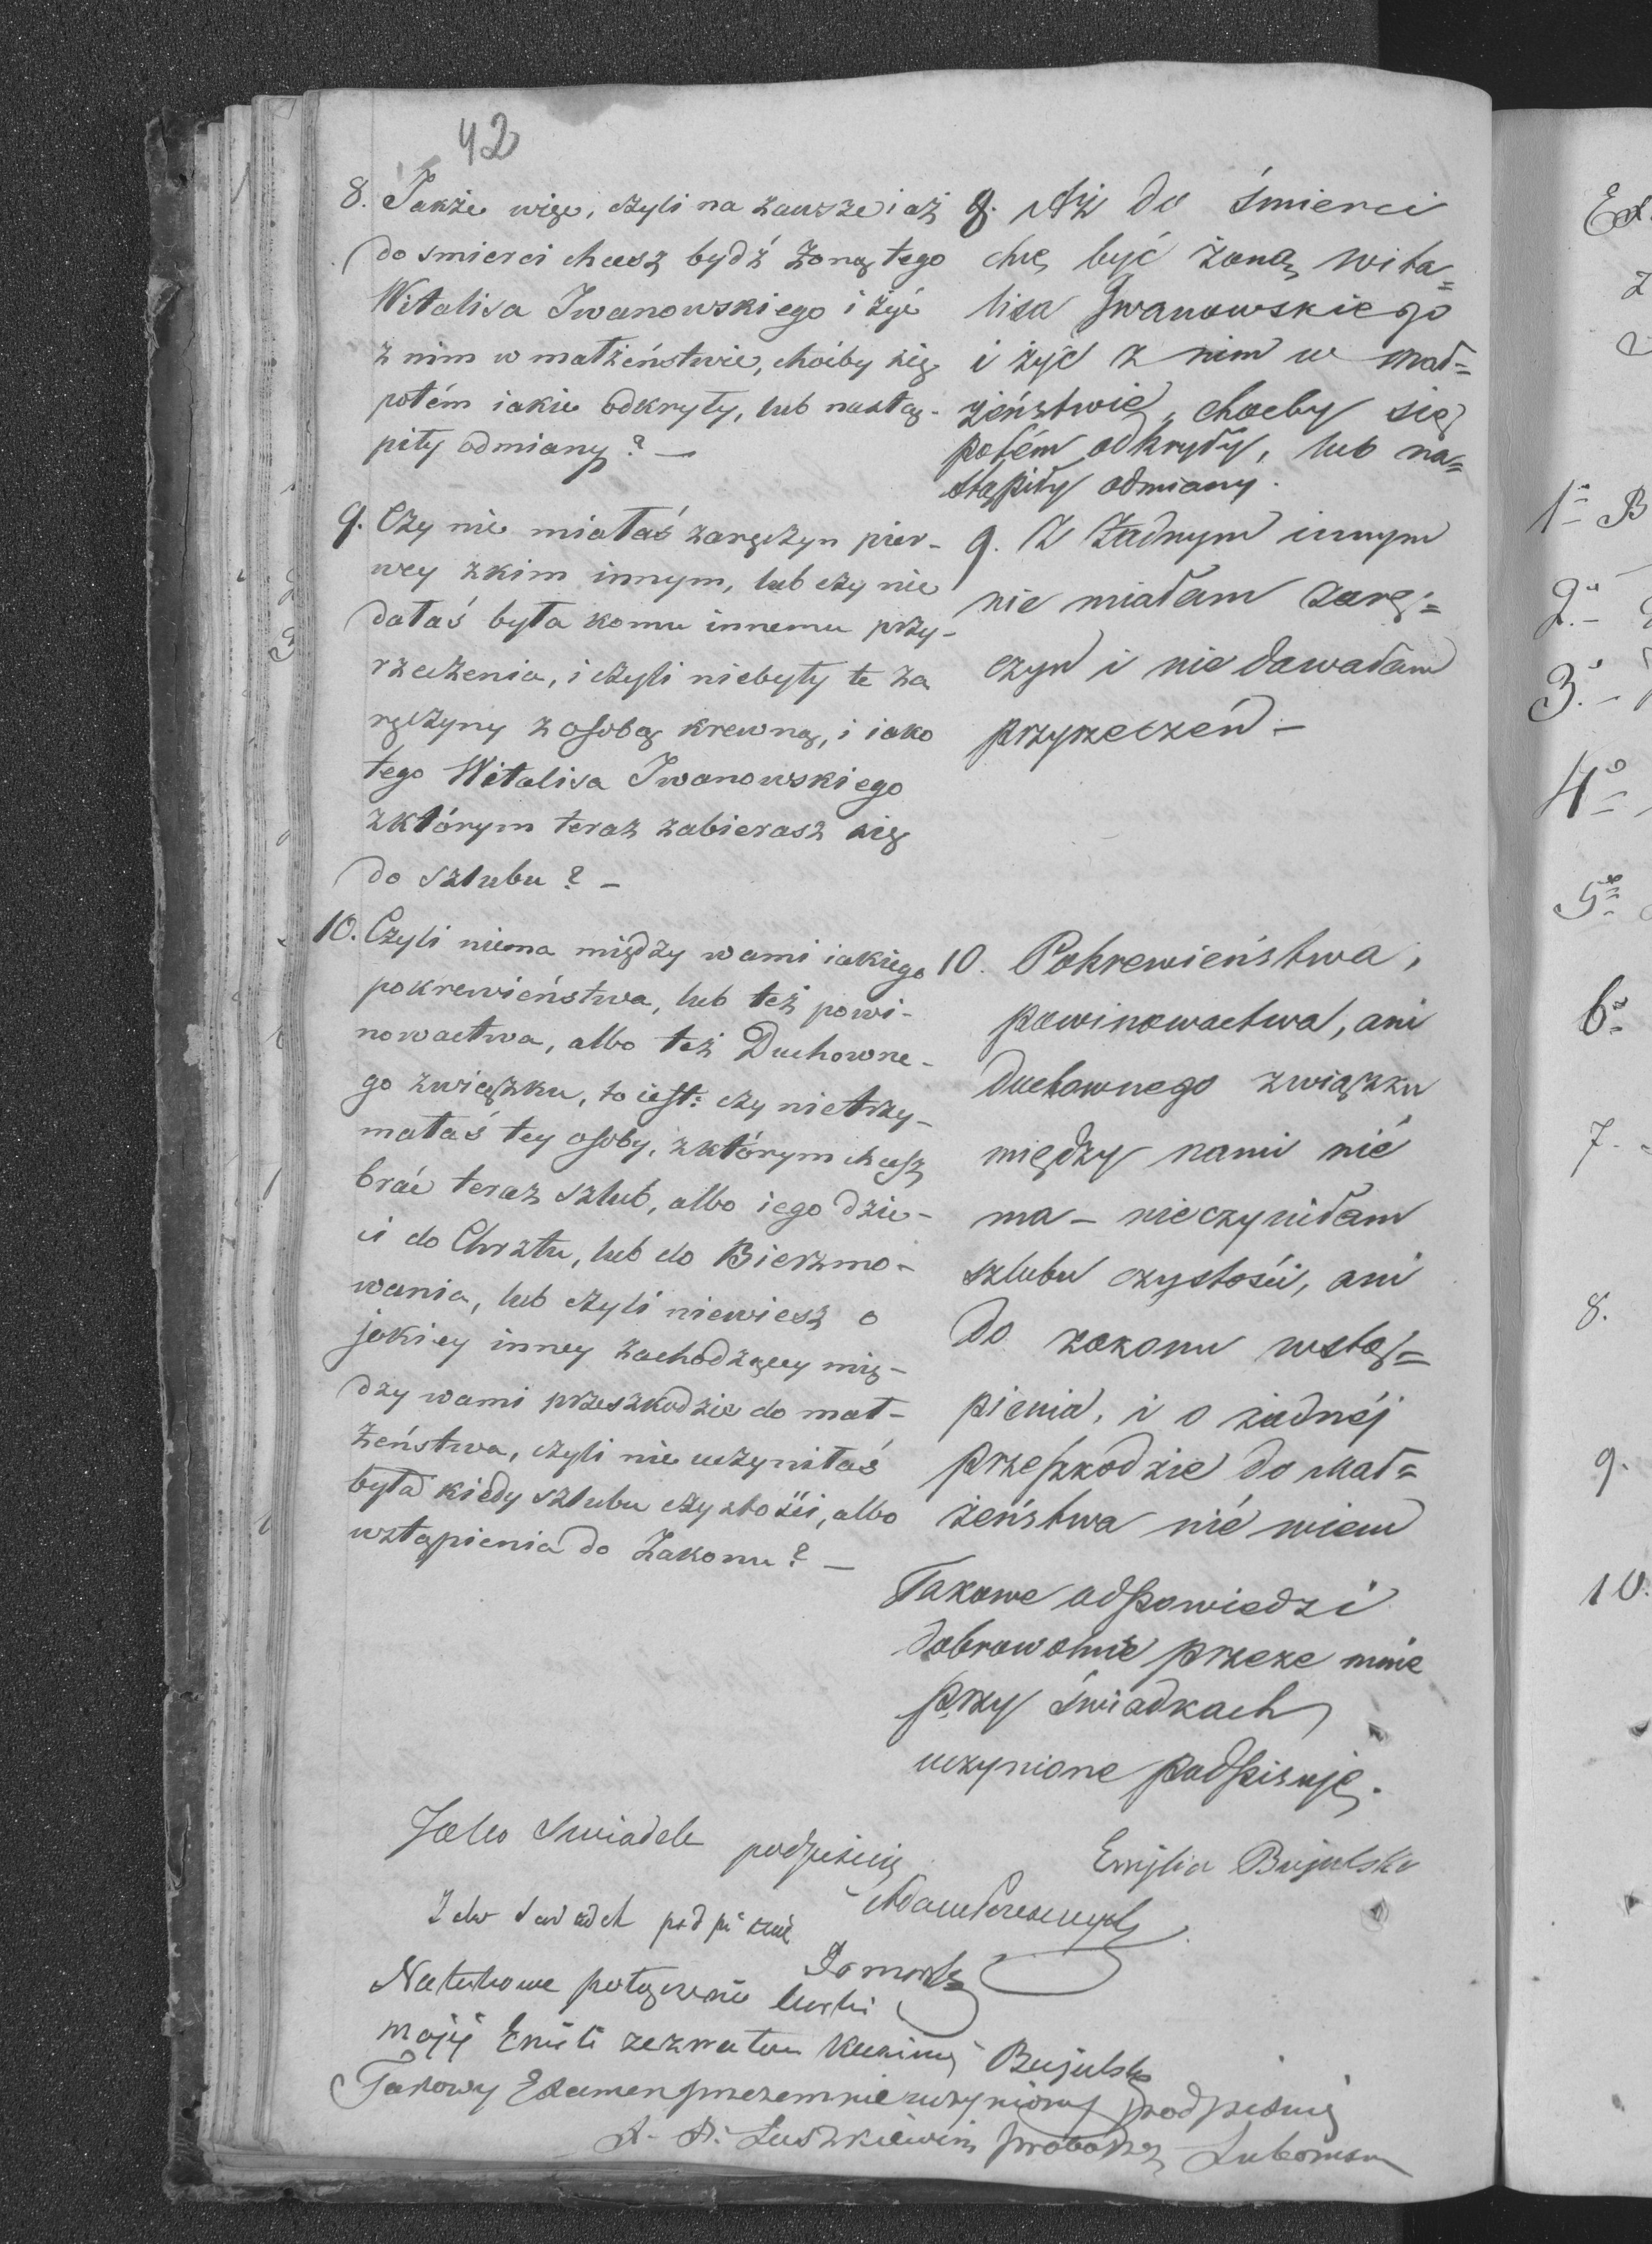 42
8. Także więc, czyli na zawsze i aż
do smierci chcesz bydź żoną tego
Witalisa Iwanowskiego i żyć
z nim w małżeństwie, choćby się
potém iakie odkryły, lub nastą-
piły odmiany? —
9. Czy nie miałaś zaręczyn pier-
wey zkim innym, lub czy nie
dałaś była komu innemu przy-
rzeczenia, i czyli niebyły te za
ręczyny z osobą krewną, i iako
tego Witalisa Iwanowskiego
zktórym teraz zabierasz się
do szlubu? —
10. Czyli niema między wami iakiego
pokrewieństwa, lub też powi-
nowactwa, albo też Duchowne-
go związku, to iest: czy nietrzy-
małaś tey osoby, zktórym chcesz
brać teraz szlub, albo iego dzie-
ci do Chrztu, lub do Bierzmo-
wania, lub czyli niewiesz o
jakiey inney zachodzącey mię-
dzy wami przeszkodzie do mał-
żeństwa, czyli nie uczyniłaś
była kiedy szlubu czystości, albo
wstąpienia do Zakonu? —
8. Aż do śmierci
chcę być żoną Wita=
lisa Iwanowskiego
i żyć z nim w mał=
żeństwie, choćby się
potém odkryły, lub na=
stąpiły odmiany.
9. Z żadnym innym
nie miałam zarę=
czyn i nie dawałam
przyrzeczeń —
10. Pokrewieństwa,
powinowactwa, ani
duchownego związku
między nami nié
ma — nieczyniłam
szlubu czystości, ani
do zakonu wstą=
pienia, i o żadnéj
przeszkodzie do Mał=
żeństwa nié wiem
Takowe odpowiedzi
dobrowolnie przeze mnie
przy świadkach
uczynione podpisuję.
Emjlia Bujalska
Jako Swiadek podpisuię
Adam
podpisuie
połączenie Curki
mojéj Emili zezwalam Bujalski
Takowy Examen przezemnie uczyniony podpisuię
X. A. Łuszkiewicz proboszcz
Ex
1° B
2°
3°
4°
5°
6°
7.
8.
9.
10.